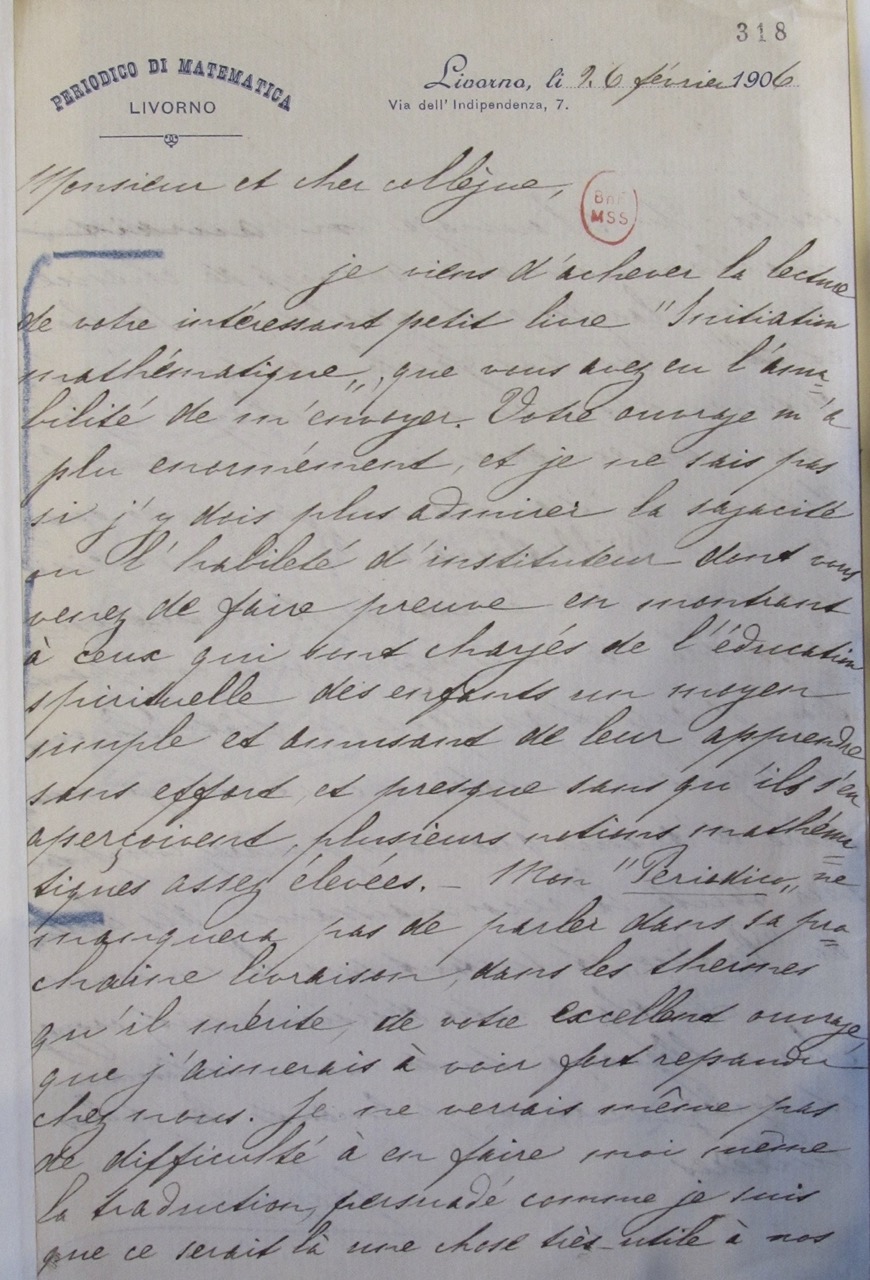 318
PERIODICO DI MATEMATICA
LIVORNO
Livorno, li 26 février 1906
Via dell' Indipendenza, 7.
Monsieur et cher collègue,
BnF
MSS
je viens d'achever la lecture
de votre intéressant petit livre "Initiation
mathématique„, que vous avez eu l'ama=
bilité de m'envoyer. Votre ouvrage m'a
plu enormément, et je ne sais pas
si j'y dois plus admirer la sagacité
ou l'habileté d'instituteur dont vous
venez de faire preuve en montrant
à ceux qui sont chargés de l'éducation
spirituelle des enfants un moyen
simple et amusant de leur apprendre
sans effort, et presque sans qu'ils s'en
aperçoivent, plusieurs notions mathéma=
tiques assez élevées. — Mon "Periodico„ ne
manquera pas de parler dans sa pro=
chaine livraison, dans les thermes
qu'il mérite, de votre excellent ouvrage,
que j'aimerais à voir fort repandu
chez nous. Je ne verrais même pas
de difficulté à en faire moi même
la traduction, persuadé comme je suis
que ce serait là une chose très-utile à nos